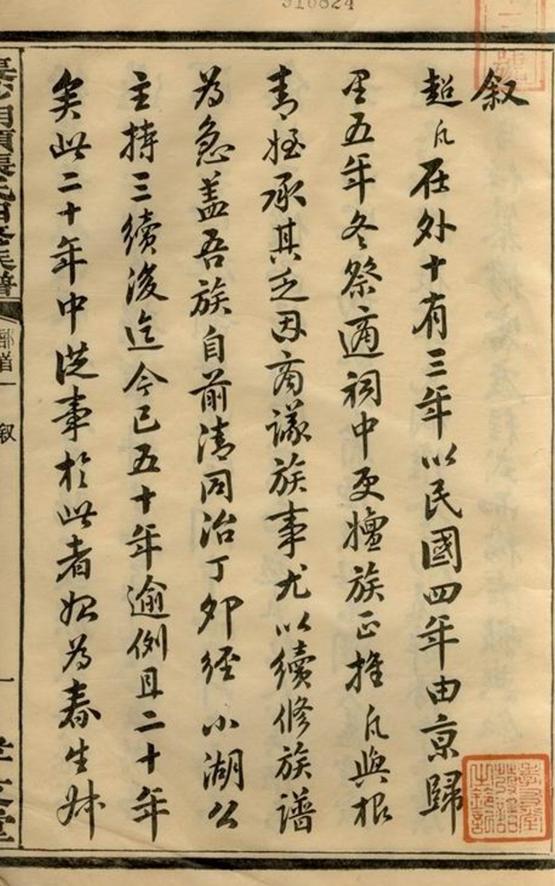 叙
超凡在外十有三年以民國四年由京歸
里五年冬祭適祠中更嬗族正推凡與根
青姪承其乏因商議族事尤以續修族譜
為急蓋吾族自前清同治丁卯經小湖公
主持三續後迄今已五十年逾例且二十年
矣此二十年中從事於此者如為春生
張氏四修族譜
叙
一
310824